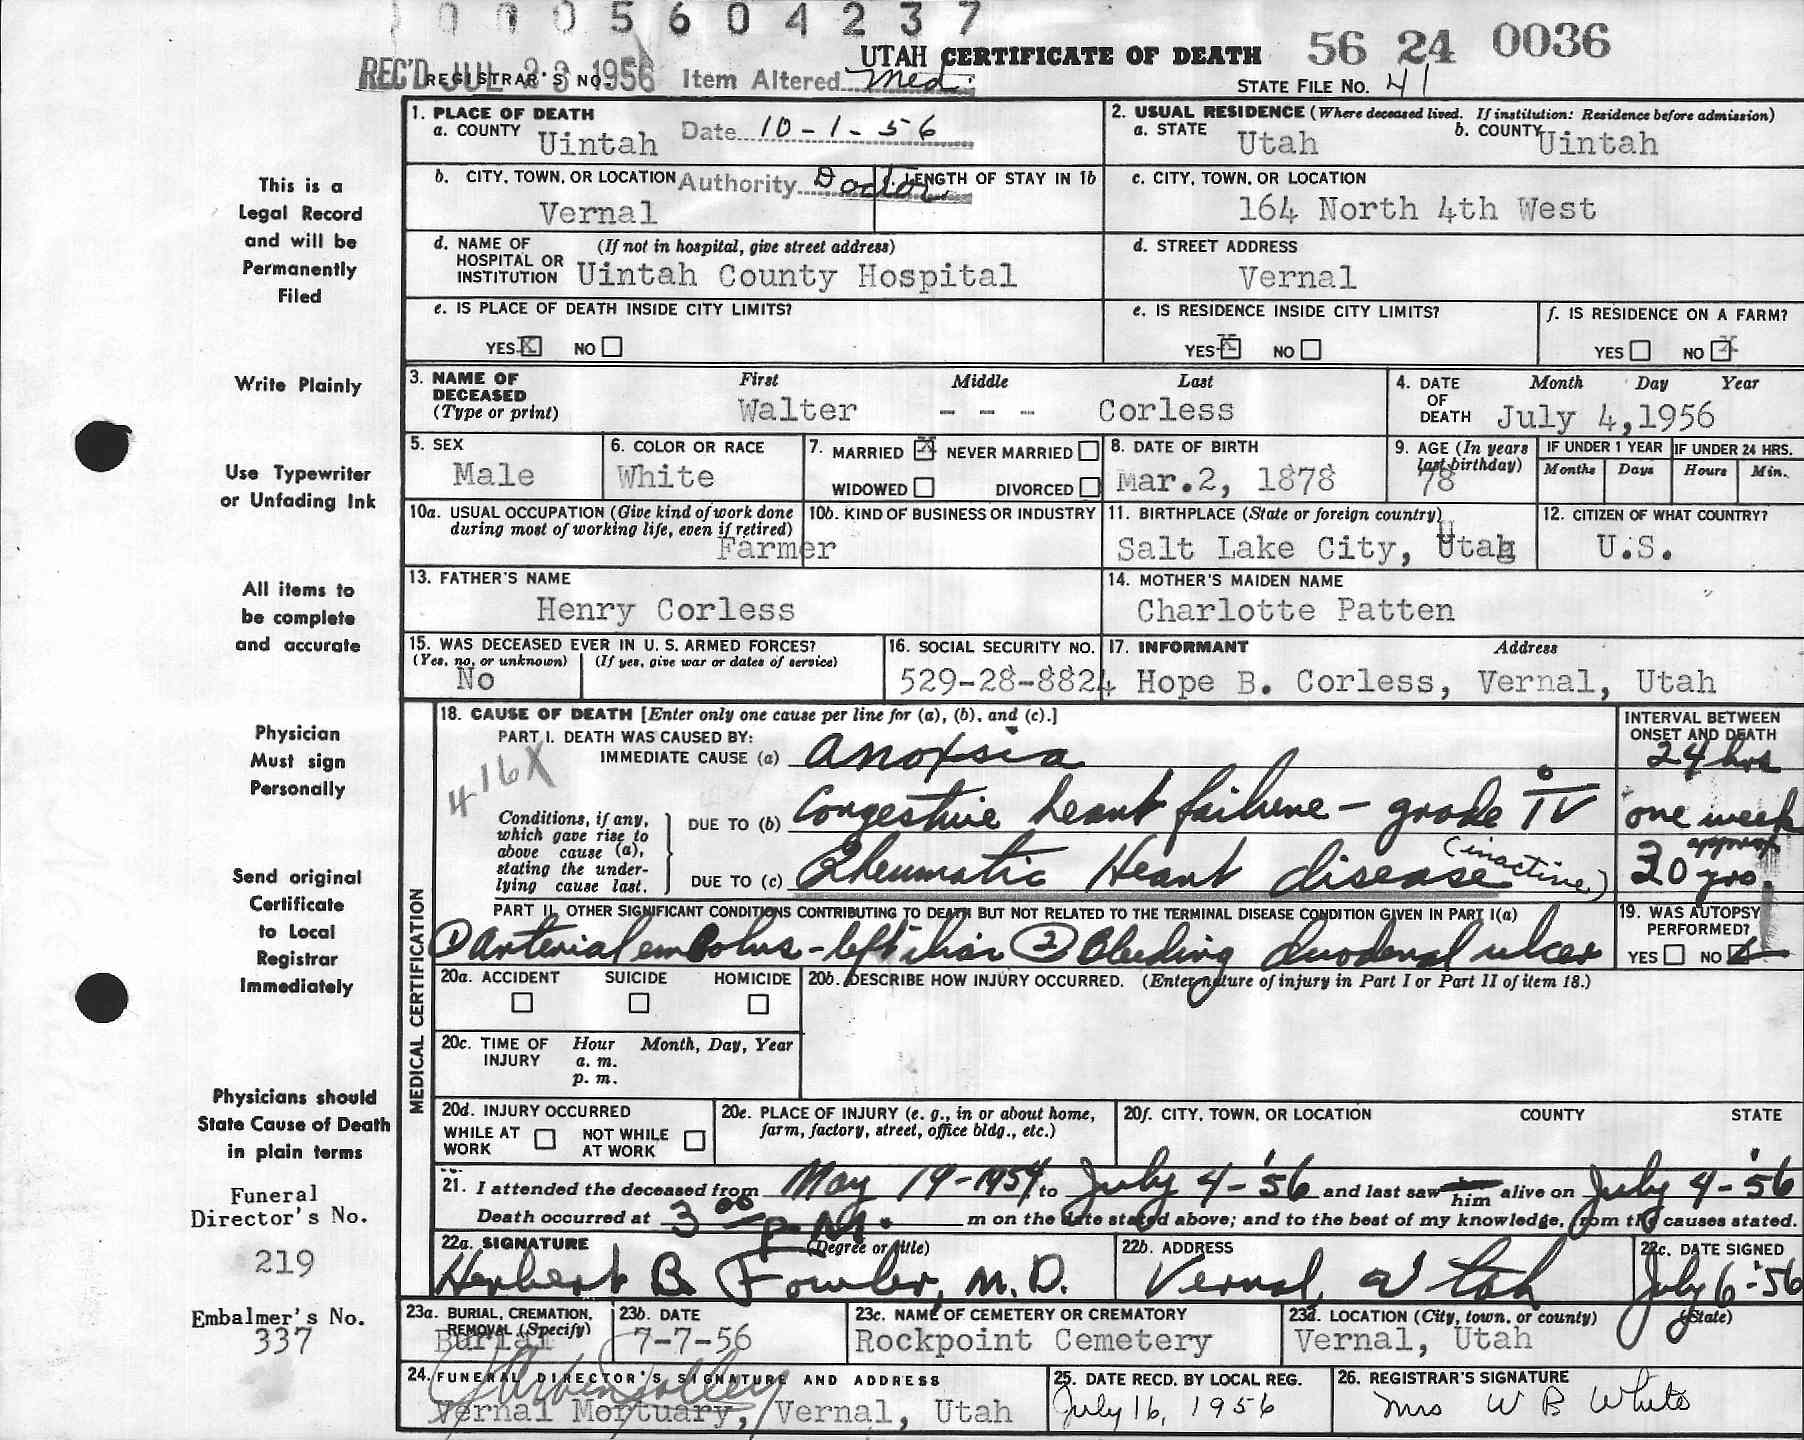 0005604237
UTAH CERTIFICATE OF DEATH 56 24 0036
REC'D JUL 23 1956 REGISTRAR'S NO. Item Altered Med.
STATE FILE NO. 41
1. PLACE OF DEATH
a. COUNTY Uintah Date 10-1-56
2. USUAL RESIDENCE (Where deceased lived. If institution: Residence before admission)
a. STATE Utah b. COUNTY Uintah
b. CITY, TOWN, OR LOCATION Vernal Authority Doctor
c. LENGTH OF STAY IN 1b
c. CITY, TOWN, OR LOCATION
164 North 4th West
d. NAME OF HOSPITAL OR INSTITUTION (If not in hospital, give street address)
Uintah County Hospital
d. STREET ADDRESS
Vernal
e. IS PLACE OF DEATH INSIDE CITY LIMITS?
YES X NO
e. IS RESIDENCE INSIDE CITY LIMITS?
YES X NO
f. IS RESIDENCE ON A FARM?
YES NO X
3. NAME OF DECEASED (Type or print)
First Middle Last
Walter - - - Corless
4. DATE OF DEATH Month Day Year
July 4, 1956
5. SEX
Male
6. COLOR OR RACE
White
7. MARRIED X NEVER MARRIED
WIDOWED DIVORCED
8. DATE OF BIRTH
Mar.2, 1878
9. AGE (In years last birthday)
78
IF UNDER 1 YEAR Months Days
IF UNDER 24 HRS. Hours Min.
10a. USUAL OCCUPATION (Give kind of work done during most of working life, even if retired)
Farmer
10b. KIND OF BUSINESS OR INDUSTRY
11. BIRTHPLACE (State or foreign country)
Salt Lake City, Utah
12. CITIZEN OF WHAT COUNTRY?
U.S.
13. FATHER'S NAME
Henry Corless
14. MOTHER'S MAIDEN NAME
Charlotte Patten
15. WAS DECEASED EVER IN U. S. ARMED FORCES?
(Yes, no, or unknown) (If yes, give war or dates of service)
No
16. SOCIAL SECURITY NO.
529-28-8824
17. INFORMANT Address
Hope B. Corless, Vernal, Utah
MEDICAL CERTIFICATION
18. CAUSE OF DEATH [Enter only one cause per line for (a), (b), and (c).]
INTERVAL BETWEEN ONSET AND DEATH
PART I. DEATH WAS CAUSED BY:
IMMEDIATE CAUSE (a) Anoxsia 24 hrs
416X
Conditions, if any, which gave rise to above cause (a), stating the underlying cause last.
DUE TO (b) Congestive heart failure - grade IV one week
DUE TO (c) Rheumatic Heart disease (inactive) approx 30 yrs.
PART II. OTHER SIGNIFICANT CONDITIONS CONTRIBUTING TO DEATH BUT NOT RELATED TO THE TERMINAL DISEASE CONDITION GIVEN IN PART I(a)
1 Arterial embolus - left iliac 2 Bleeding duodenal ulcer
19. WAS AUTOPSY PERFORMED?
YES NO
20a. ACCIDENT SUICIDE HOMICIDE
20b. DESCRIBE HOW INJURY OCCURRED. (Enter nature of injury in Part I or Part II of item 18.)
20c. TIME OF INJURY Hour Month, Day, Year
a. m.
p. m.
20d. INJURY OCCURRED
WHILE AT WORK NOT WHILE AT WORK
20e. PLACE OF INJURY (e. g., in or about home, farm, factory, street, office bldg., etc.)
20f. CITY, TOWN, OR LOCATION COUNTY STATE
21. I attended the deceased from May 19-1954 to July 4-'56 and last saw him alive on July 4-'56
Death occurred at 3 00 P.M. m on the date stated above; and to the best of my knowledge, from the causes stated.
22a. SIGNATURE (Degree or title)
Herbert B. Fowler, M.D.
22b. ADDRESS
Vernal, Utah
22c. DATE SIGNED
July 6-'56
23a. BURIAL, CREMATION, REMOVAL (Specify)
Burial
23b. DATE
7-7-56
23c. NAME OF CEMETERY OR CREMATORY
Rockpoint Cemetery
23d. LOCATION (City, town, or county) (State)
Vernal, Utah
24. FUNERAL DIRECTOR'S SIGNATURE AND ADDRESS
Vernal Mortuary, Vernal, Utah
25. DATE RECD. BY LOCAL REG.
July 16, 1956
26. REGISTRAR'S SIGNATURE
Mrs W B White
This is a
Legal Record
and will be
Permanently
Filed
Write Plainly
Use Typewriter
or Unfading Ink
All items to
be complete
and accurate
Physician
Must sign
Personally
Send original
Certificate
to Local
Registrar
Immediately
Physicians should
State Cause of Death
in plain terms
Funeral
Director's No.
219
Embalmer's No.
337